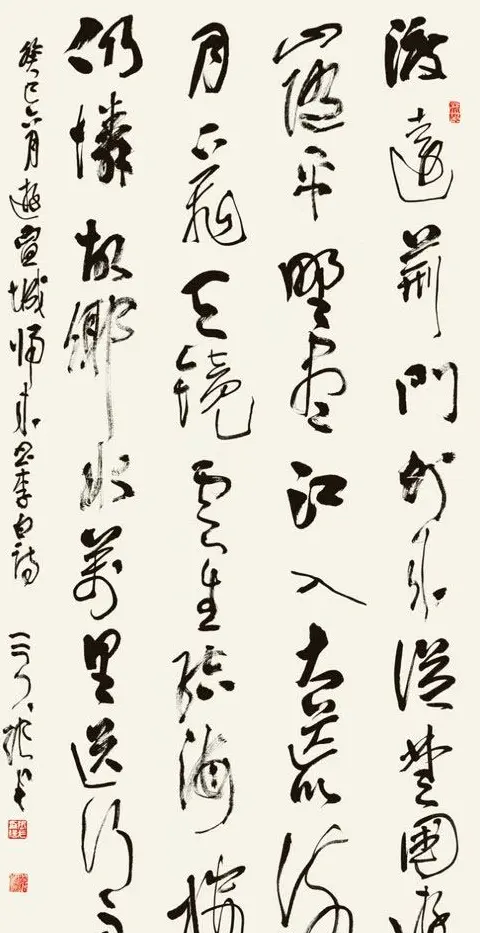 渡遠荊門外來從楚國遊
山隨平野盡江入大荒流
月下飛天鏡雲生結海樓
仍憐故鄉水萬里送行舟
癸巳六月遊宣城歸來書李白詩